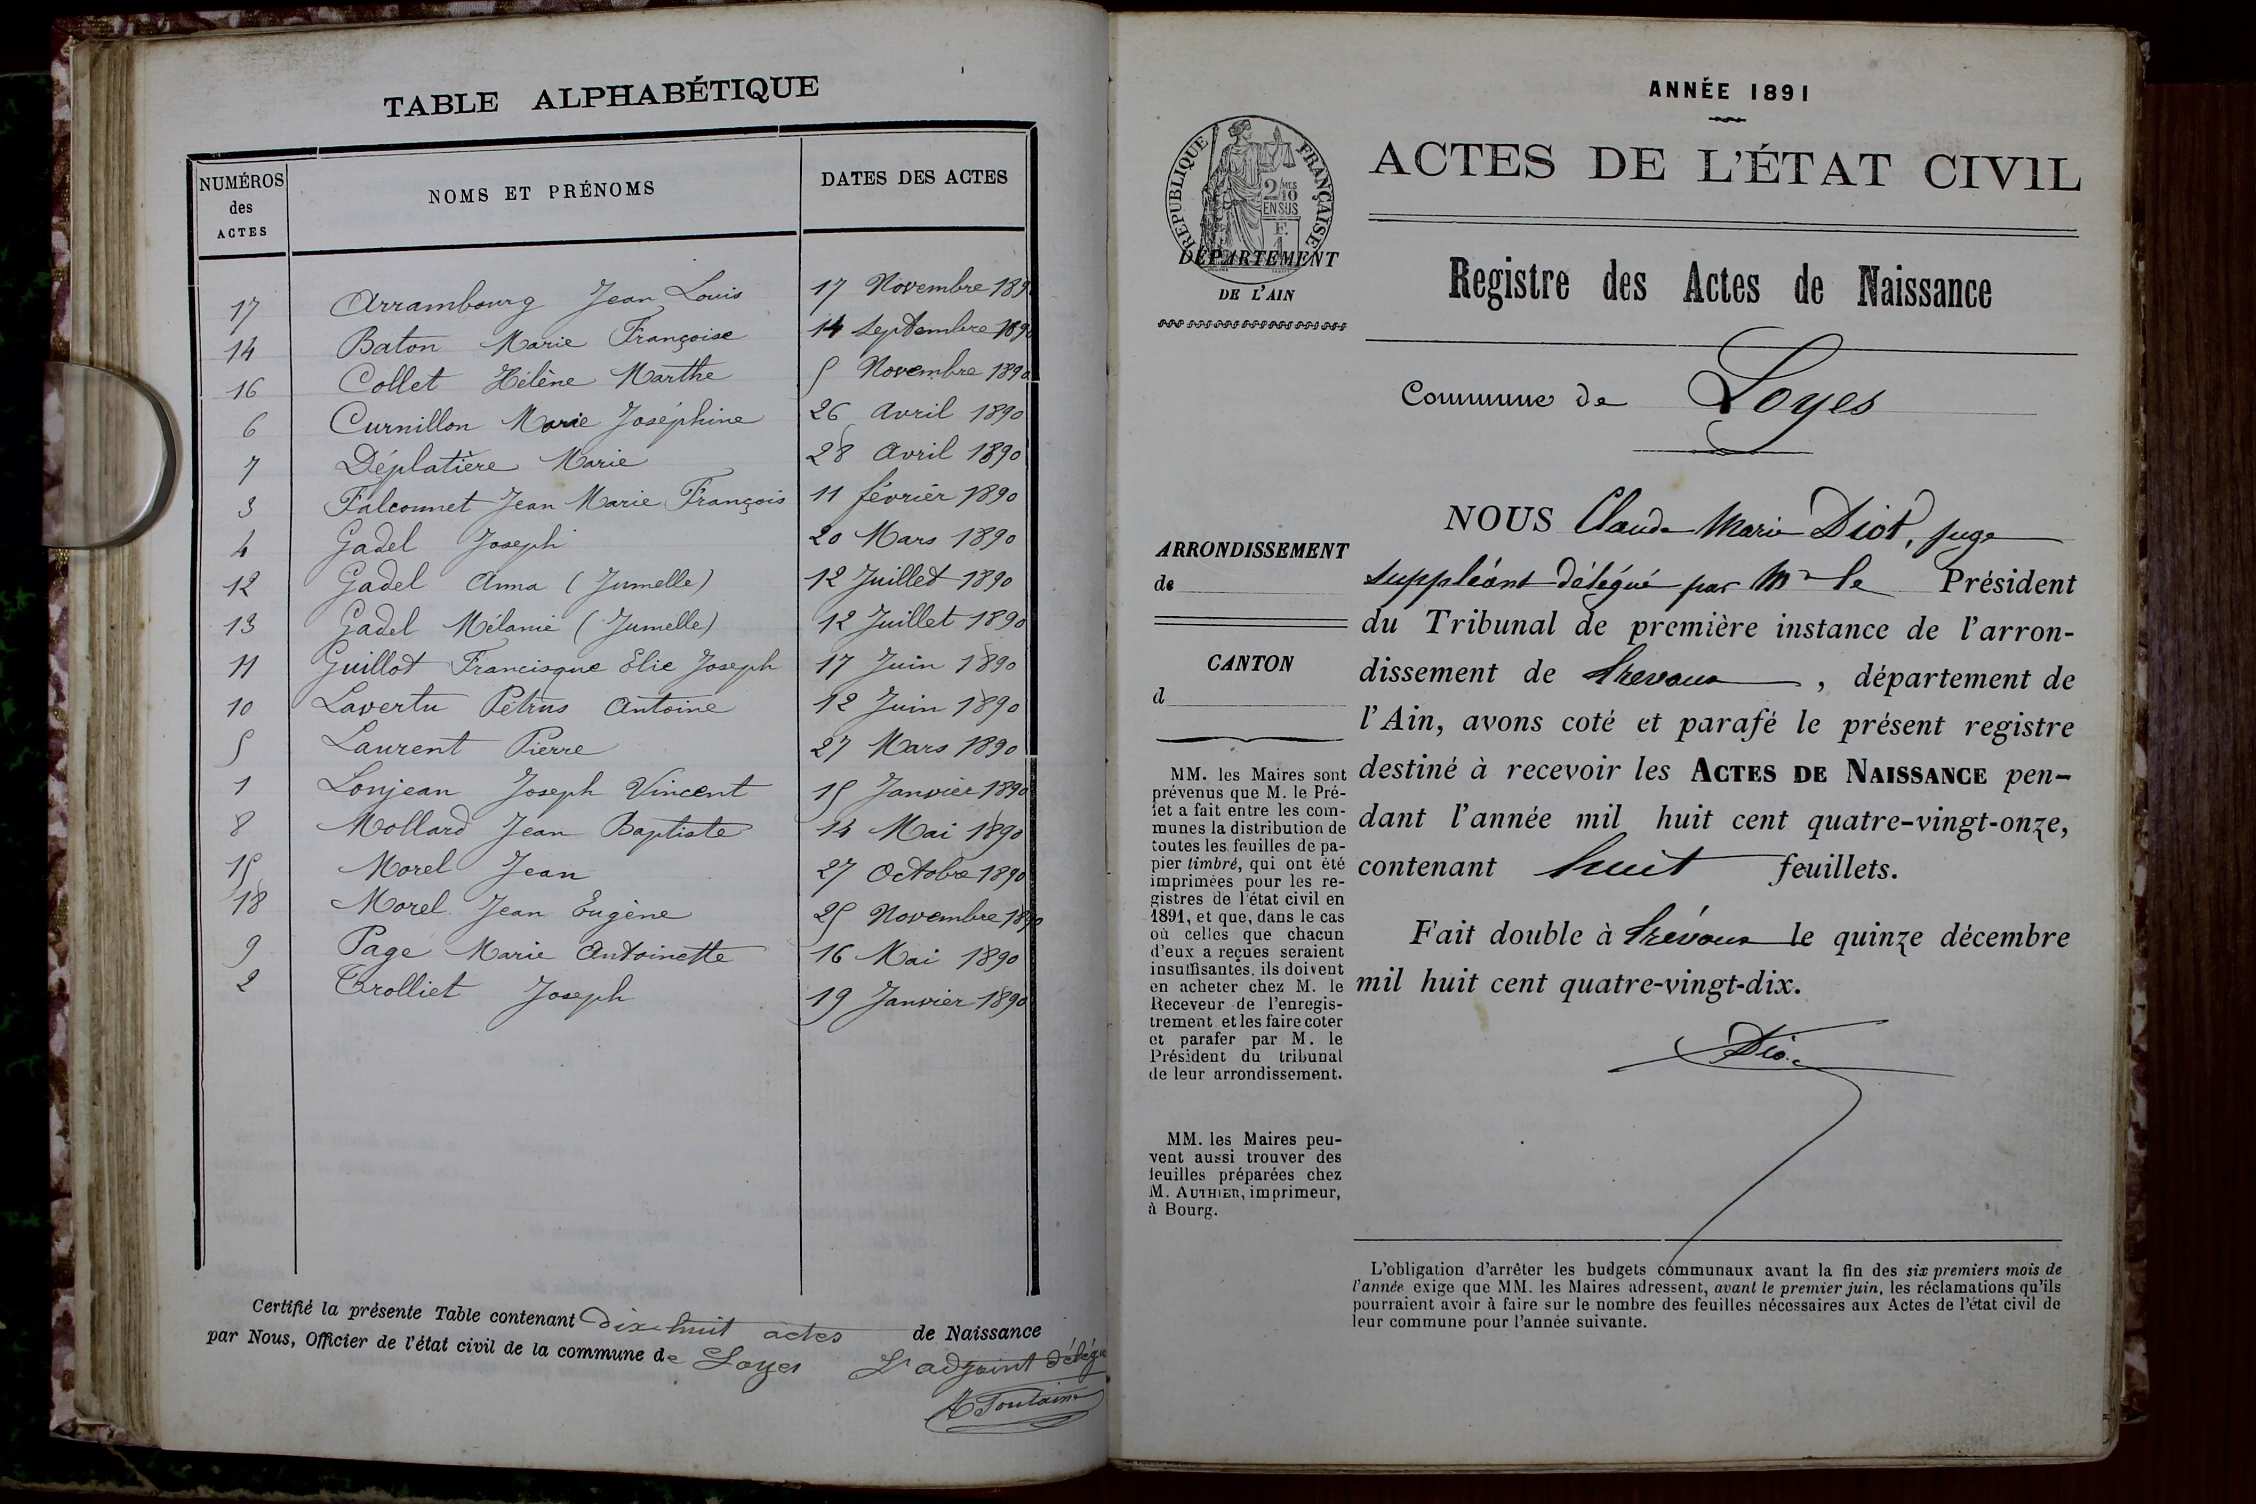 TABLE ALPHABÉTIQUE
NUMÉROS des ACTES
NOMS ET PRÉNOMS
DATES DES ACTES
17 Arrambourg Jean Louis 17 Novembre 1890
14 Baton Marie Françoise 14 Septembre 1890
16 Collet Hélène Marthe 5 Novembre 1890
6 Curnillon Marie Joséphine 26 Avril 1890
7 Déplatière Marie 28 Avril 1890
3 Falconnet Jean Marie François 11 février 1890
4 Gadel Joseph 20 Mars 1890
12 Gadel Anna (Jumelle) 12 Juillet 1890
13 Gadel Mélanie (Jumelle) 12 Juillet 1890
11 Guillot Francisque Elie Joseph 17 Juin 1890
10 Lavertu Pétrus Antoine 12 Juin 1890
5 Laurent Pierre 27 Mars 1890
1 Lonjean Joseph Vincent 15 Janvier 1890
8 Mollard Jean Baptiste 14 Mai 1890
15 Morel Jean 27 Octobre 1890
18 Morel Jean Eugène 25 Novembre 1890
9 Page Marie Antoinette 16 Mai 1890
2 Trolliet Joseph 19 Janvier 1890
Certifié la présente Table contenant dix-huit actes de Naissance
par Nous, Officier de l'état civil de la commune de Loyes L'adjoint délégué
Fontaine
ANNÉE 1891
ACTES DE L'ÉTAT CIVIL
RÉPUBLIQUE FRANÇAISE
2/10 MES
EN SUS
F.
1
DÉPARTEMENT
DE L'AIN
Registre des Actes de Naissance
Commune de Loyes
ARRONDISSEMENT
de
CANTON
d
MM. les Maires sont
prévenus que M. le Pré-
fet a fait entre les com-
munes la distribution de
toutes les feuilles de pa-
pier timbré, qui ont été
imprimées pour les re-
gistres de l'état civil en
1891, et que, dans le cas
où celles que chacun
d'eux a reçues seraient
insuffisantes, ils doivent
en acheter chez M. le
Receveur de l'enregis-
trement et les faire coter
et parafer par M. le
Président du tribunal
de leur arrondissement.
MM. les Maires peu-
vent aussi trouver des
feuilles préparées chez
M. AUTHIER, imprimeur,
à Bourg.
NOUS Claude Marie Diot, juge
suppléant délégué par Mr le Président
du Tribunal de première instance de l'arron-
dissement de Trevoux, département de
l'Ain, avons coté et parafé le présent registre
destiné à recevoir les ACTES DE NAISSANCE pen-
dant l'année mil huit cent quatre-vingt-onze,
contenant huit feuillets.
Fait double à Trévoux le quinze décembre
mil huit cent quatre-vingt-dix.
Diot
L'obligation d'arrêter les budgets communaux avant la fin des six premiers mois de
l'année exige que MM. les Maires adressent, avant le premier juin, les réclamations qu'ils
pourraient avoir à faire sur le nombre des feuilles nécessaires aux Actes de l'état civil de
leur commune pour l'année suivante.